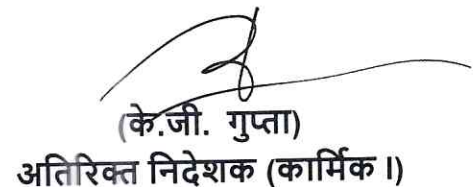 (के.जी. गुप्ता)
अतिरिक्त निदेशक (कार्मिक।)